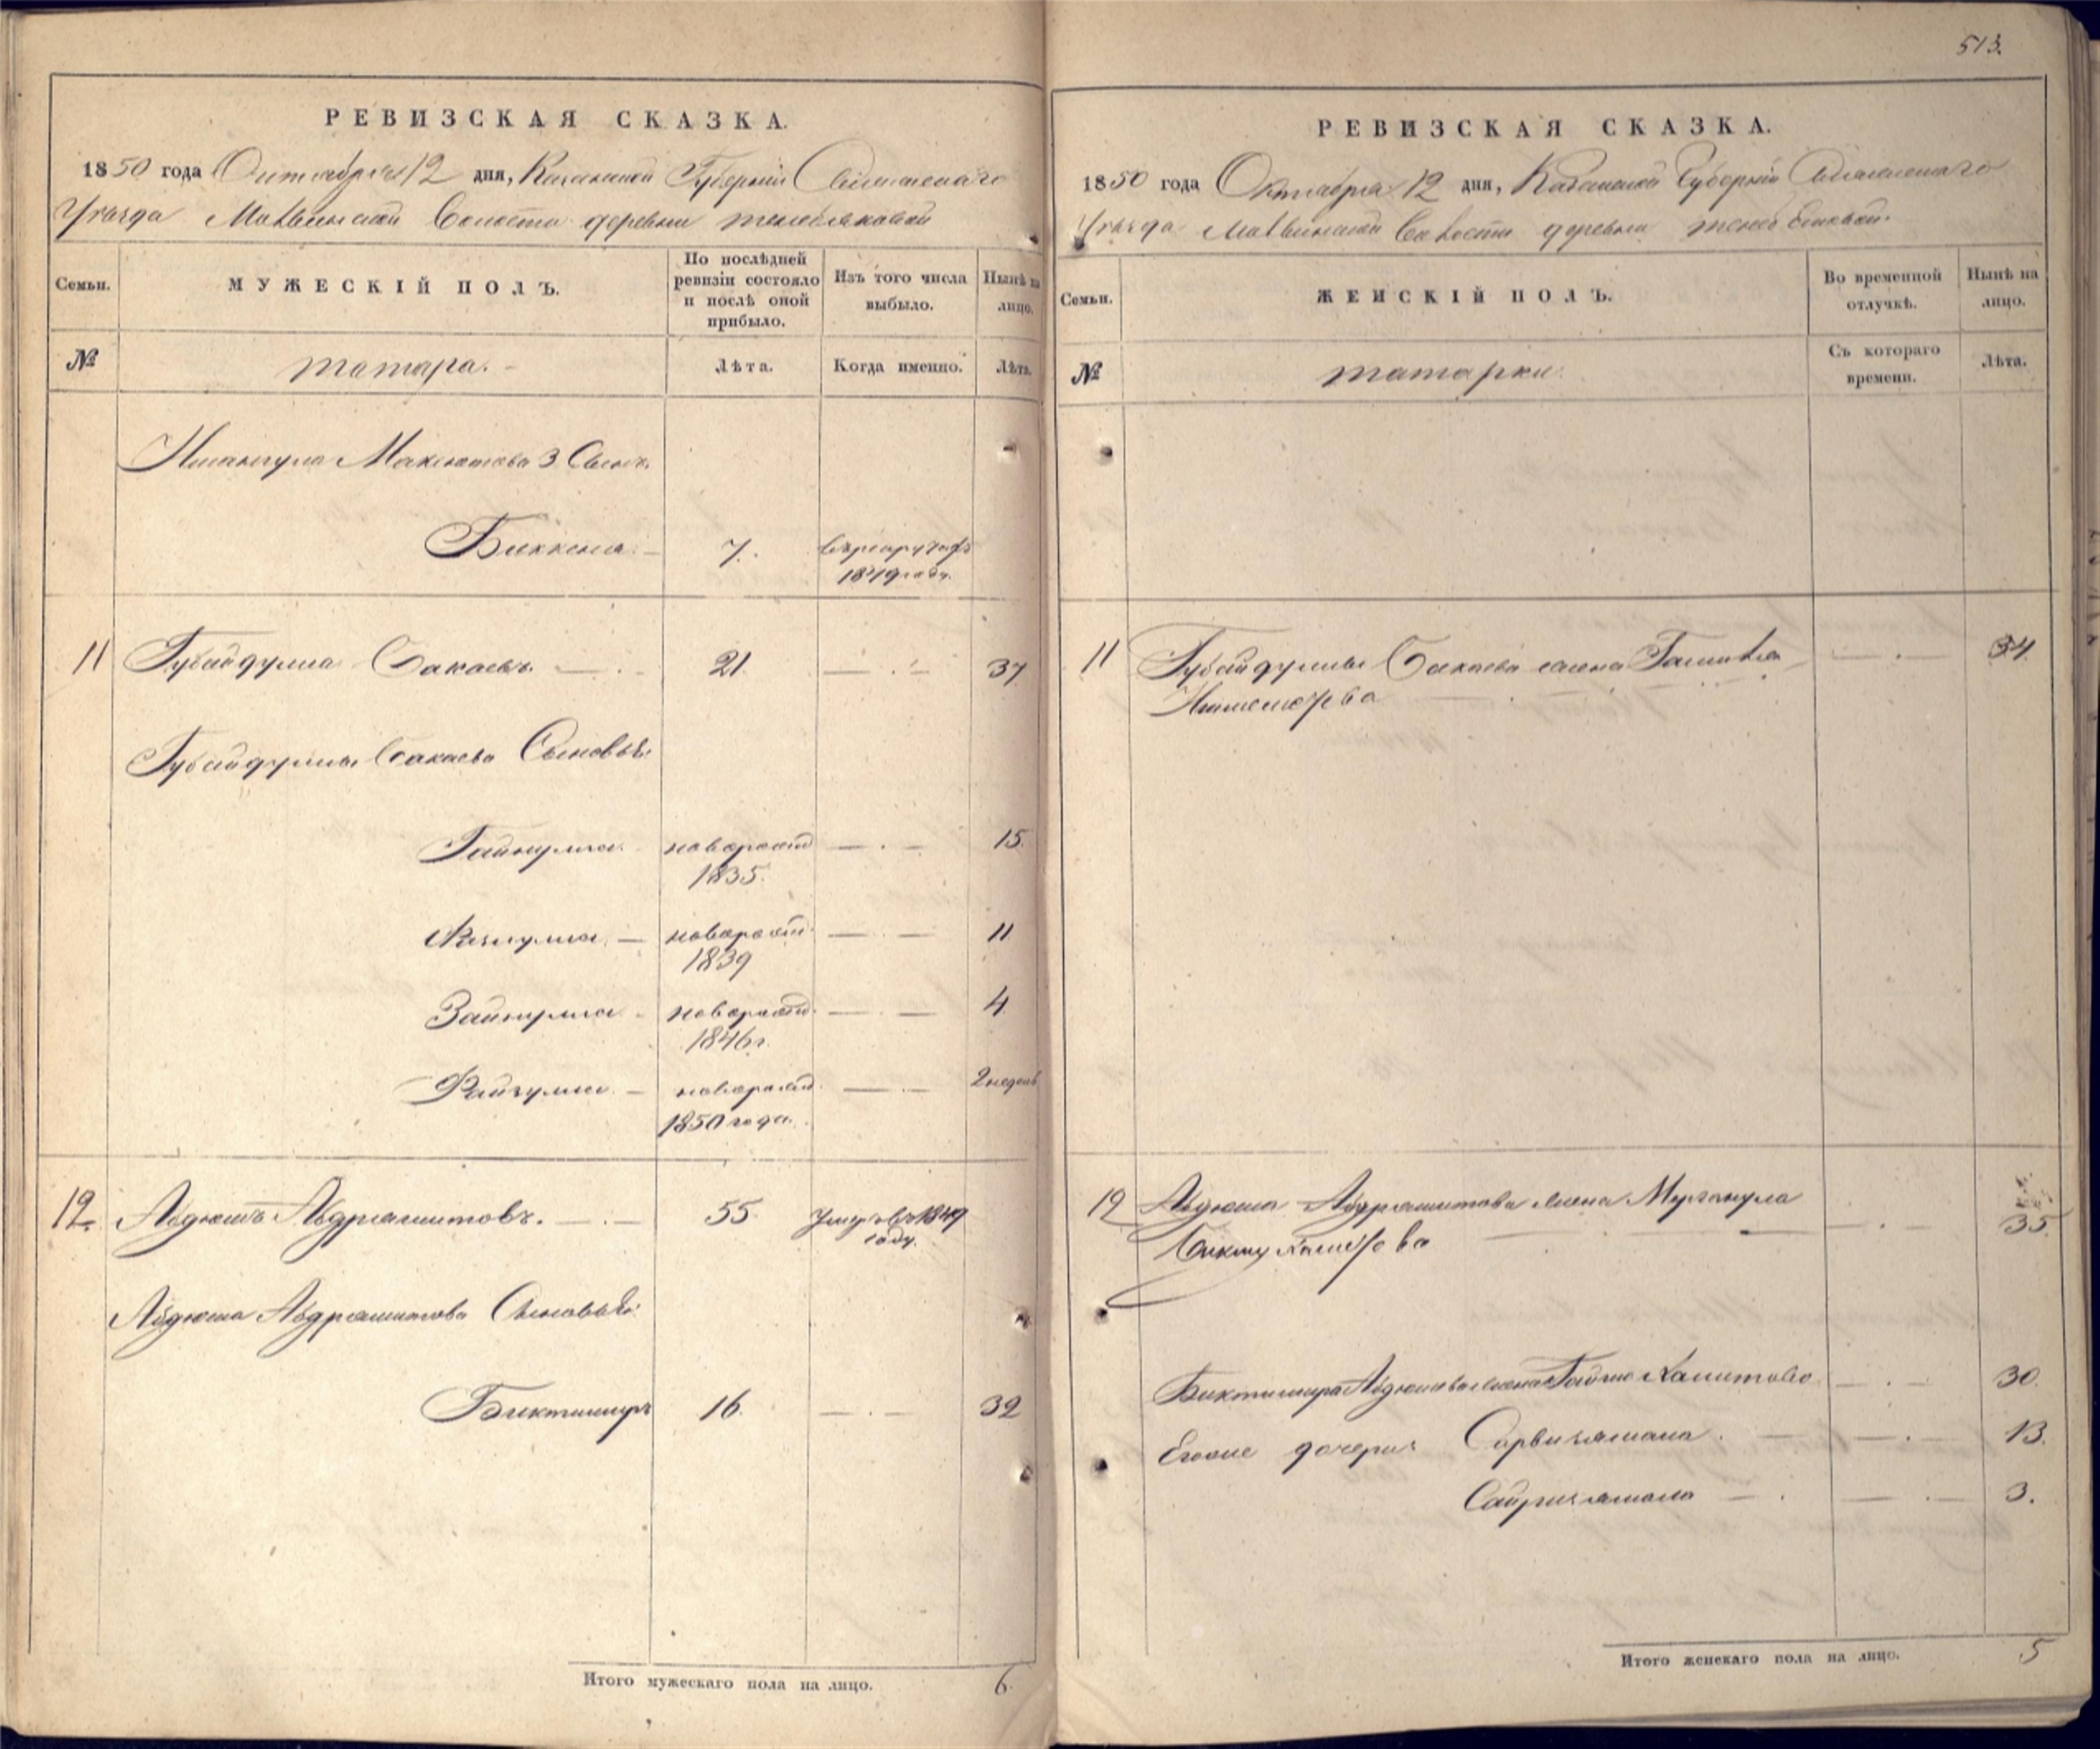 513.
РЕВИЗСКАЯ СКАЗКА.
1850 года Октября 12 дня, Казанской Губернии Спасскаго
Уезда Матвинской Волости деревни
Семьи.
МУЖЕСКІЙ ПОЛЪ.
По послѣдней ревизіи состояло и послѣ оной прибыло.
Изъ того числа выбыло.
Нынѣ на лицо.
№
татара.
Лѣта.
Когда именно.
Лѣта.
Ишангула Максютова 3 Сынъ
Биккеня 7. въ рекрутахъ
1849 году.
11 Губайдулла Бакаевъ 21. 37
Губайдуллы Бакаева Сыновья
Гайнулла новорожд 15.
1835.
новорожд 11
1839
Зайнулла новорожд 4
1846 г.
новорожд 2 недель
1850 года.
12 Абдюшъ Абдрашитовъ. 55. Умеръ въ 1849
году.
Абдюша Абдрашитова Сыновья
Биктимиръ 16. 32
Итого мужескаго пола на лицо. 6.
РЕВИЗСКАЯ СКАЗКА.
1850 года Октября 12 дня, Казанской Губерніи Спасскаго
Уезда Матвинской Волости деревни
Семьи.
ЖЕНСКІЙ ПОЛЪ.
Во временной отлучкѣ.
Нынѣ на лицо.
№
татарки.
Съ котораго времени.
Лѣта.
11 Губайдуллы Бакаева жена 34.
12 Абдюша Абдрашитова жена 35
Биктимира Абдюшева жена Хамитова 30.
Егоже дочери: 13.
3.
Итого женскаго пола на лицо. 5